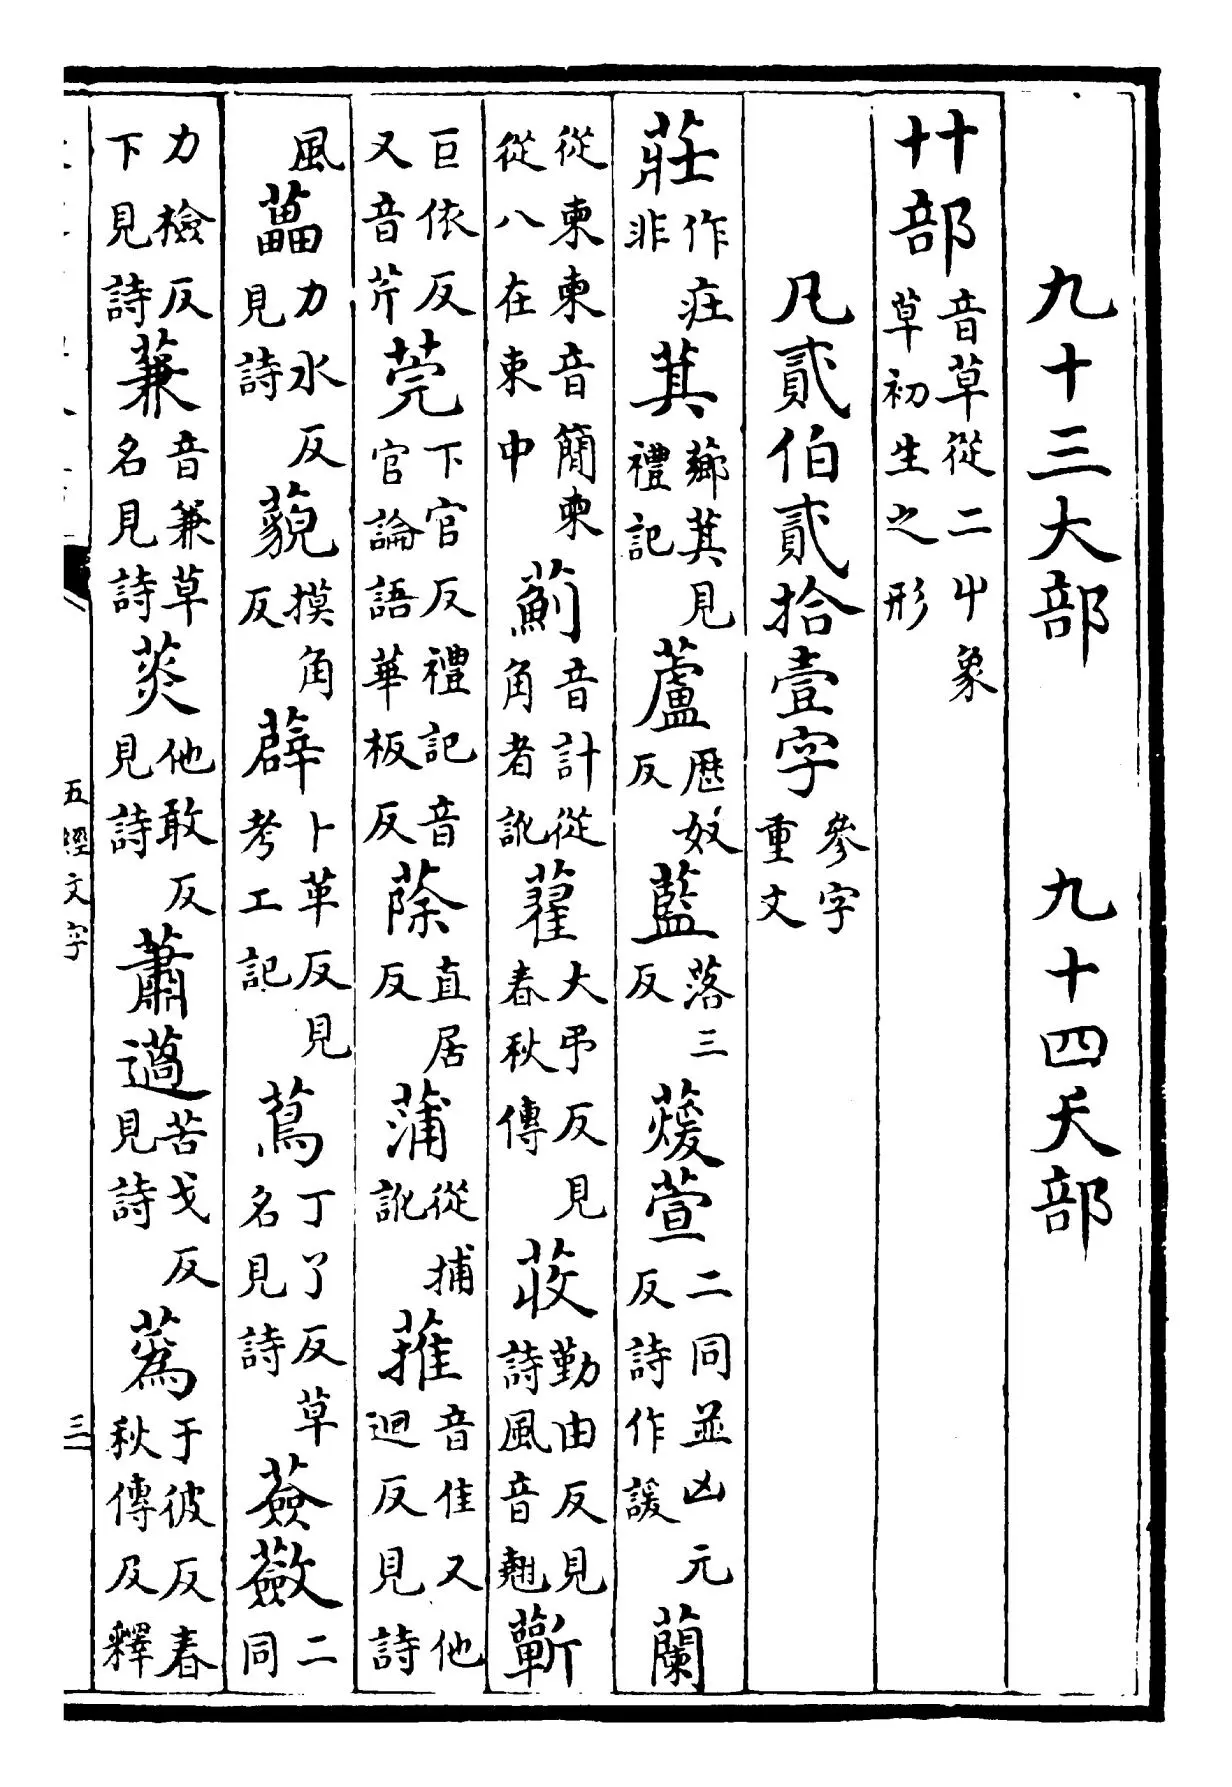 九十三大部　九十四夭部
艹部音草從二屮象草初生之形
凡貳伯貳拾壹字參字重文
莊作庄非萁薌萁見禮記蘆歷奴反藍落三反蕿萱二同並凶元反詩作諼蘭
從柬柬音簡柬從八在束中薊音計從角者訛藋大弔反見春秋傳荍勤由反見詩風音翹蘄
巨依反又音芹莞下官反禮記音官論語華板反蒢直居反蒲從捕訛蓷音隹又他迴反見詩
風藟力水反見詩藐摸角反薜卜革反見考工記蔦丁了反草名見詩薟蘞二同
力檢反下見詩蒹音兼草名見詩菼他敢反見詩蕭薖苦戈反見詩蔿于彼反春秋傳及釋
五經文字　三